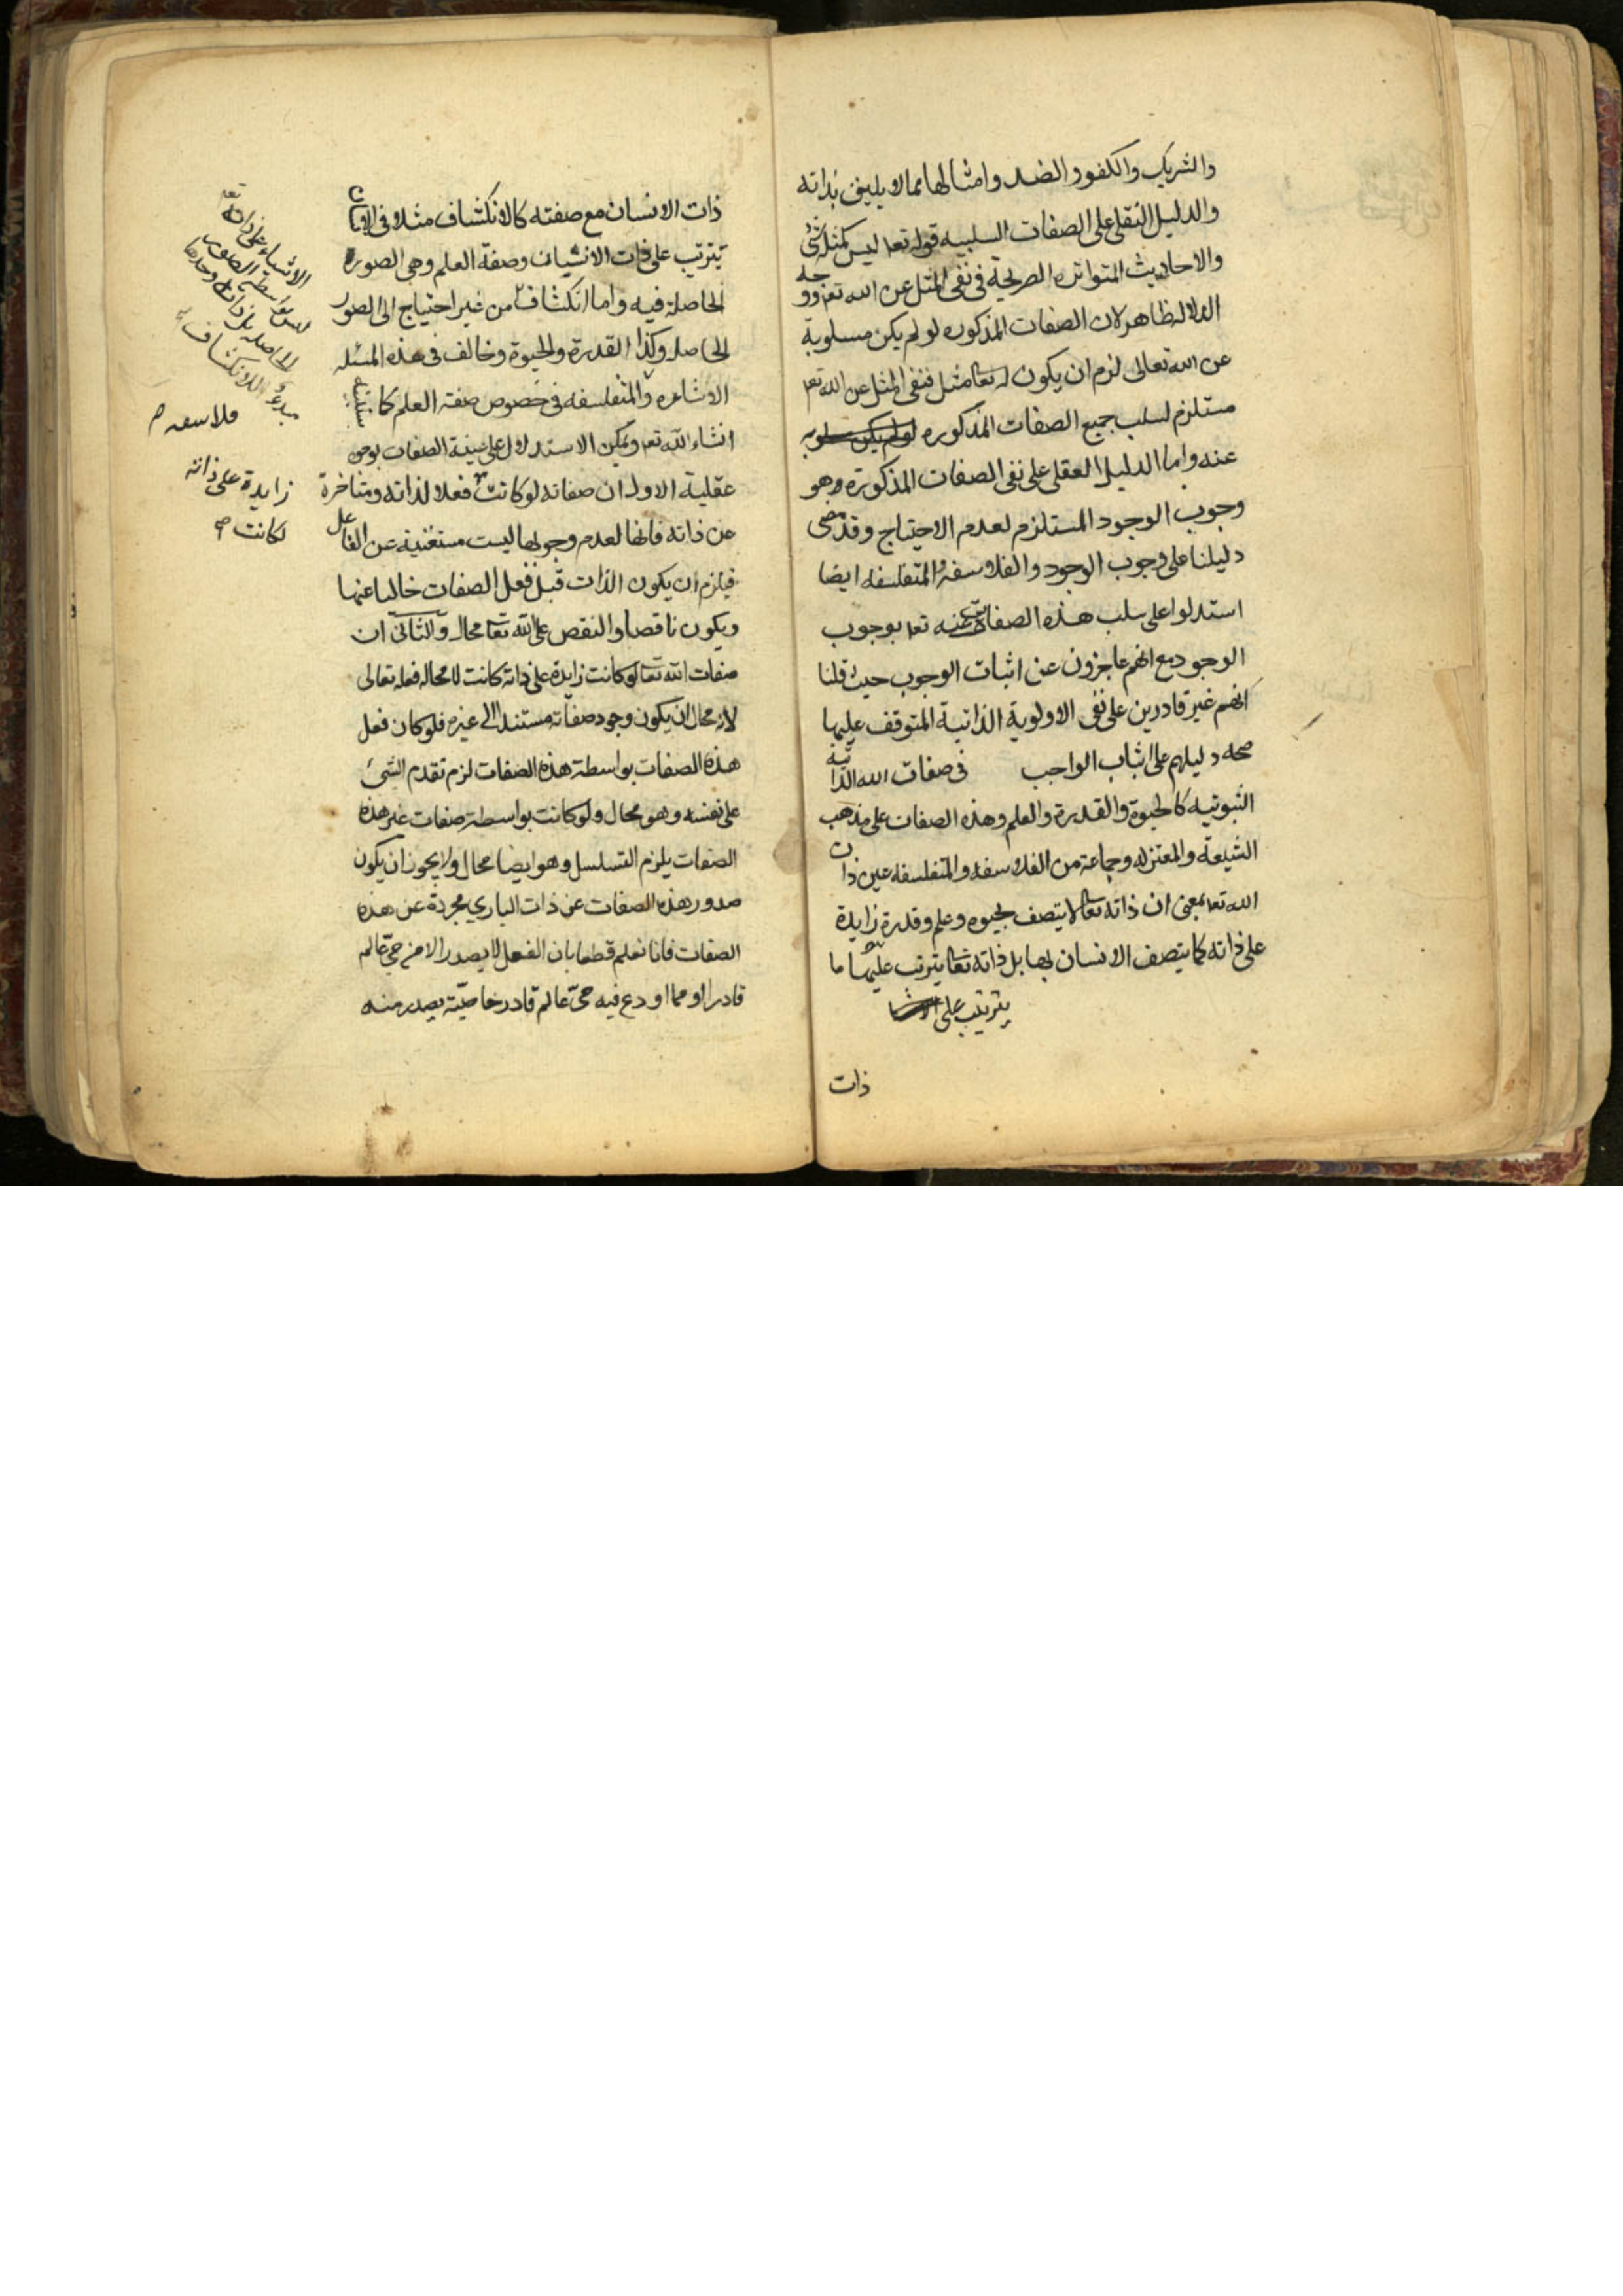 والشريك والكفو والضد وامثالها مما لا يليق بذاته
والدليل النقلي على الصفات السلبيه قوله تعا ليس كمثله شئ
والاحاديث المتواتره الصريحة في نفى المثل عن الله تعا ووجه
الدلاله ظاهر لان الصفات المذكوره لو لم يكن مسلوبة
عن الله تعالى لزم ان يكون له تعا مثل فنفى المثل عن الله تعا
مستلزم لسلب جميع الصفات المذكوره لو لم يكن مسلوبه
عنه واما الدليل العقلى على نفى الصفات المذكورة وهو
وجوب الوجود المستلزم لعدم الاحتياج وقد مضى
دليلنا على وجوب الوجود والفلاسفه والمتفلسفه ايضا
استدلوا على سلب هذه الصفات عنه تعا بوجوب
الوجود مع انهم عاجزون عن اثبات الوجوب حيث قلنا
انهم غير قادرين على نفى الاولوية الذاتية المتوقف عليها
صحه دليلهم على اثبات الواجب في صفات الله الذاتيه
الثبوتيه كالحيوة والقدرة والعلم وهذه الصفات على مذهب
الشيعة والمعتزله وجماعة من الفلاسفه والمتفلسفه عين ذات
الله تعا بمعنى ان ذاته تعا لا يتصف بحيوه وعلم وقدرة زايدة
على ذاته كما يتصف الانسان بها بل ذاته تعا يترتب عليها ما
يترتب على
ذات
ذات الانسان مع صفته كالانكشاف مثلا في الانسان
يترتب على ذات الانسان وصفة العلم وهى الصورة
الحاصلة فيه واما انكشاف من غير احتياج الى الصور
الحاصله وكذا القدرة والحيوة وخالف في هذه المسئله
الاشاعره والمتفلسفه في خصوص صفة العلم كما سياتى
انشاء الله تعا ويمكن الاستدلال على عينية الصفات بوجوه
عقلية الاول ان صفاته لو كانت فعلا لذاته ومتاخرة
عن ذاته فانها لعدم وجوبها ليست مستغنية عن الفاعل
فيلزم ان يكون الذات قبل فعل الصفات خاليا عنها
ويكون ناقصا والنقص على الله تعا محال والثانى ان
صفات الله تعا لو كانت زايدة على ذاته كانت لا محاله فعله تعالى
لانه محال ان يكون وجود صفاته مستندا الى غيره فلو كان فعل
هذه الصفات بواسطة هذه الصفات لزم تقدم الشئ
على نفسه وهو محال ولو كانت بواسطة صفات غير هذه
الصفات يلزم التسلسل وهو ايضا محال ولا يجوز ان يكون
صدور هذه الصفات عن ذات الباري مجردة عن هذه
الصفات فانا نعلم قطعا بان الفعل لا يصدر الا من حيّ عالم
قادر او مما اودع فيه حيّ عالم قادر خاصيّة يصدر منه
الاشياء على ذاته تعا
ليس بواسطة الصور
الحاصله بل ذاته وحدها
مبدء للانكشاف
فلاسفه
زايدة على ذاته
لكانت